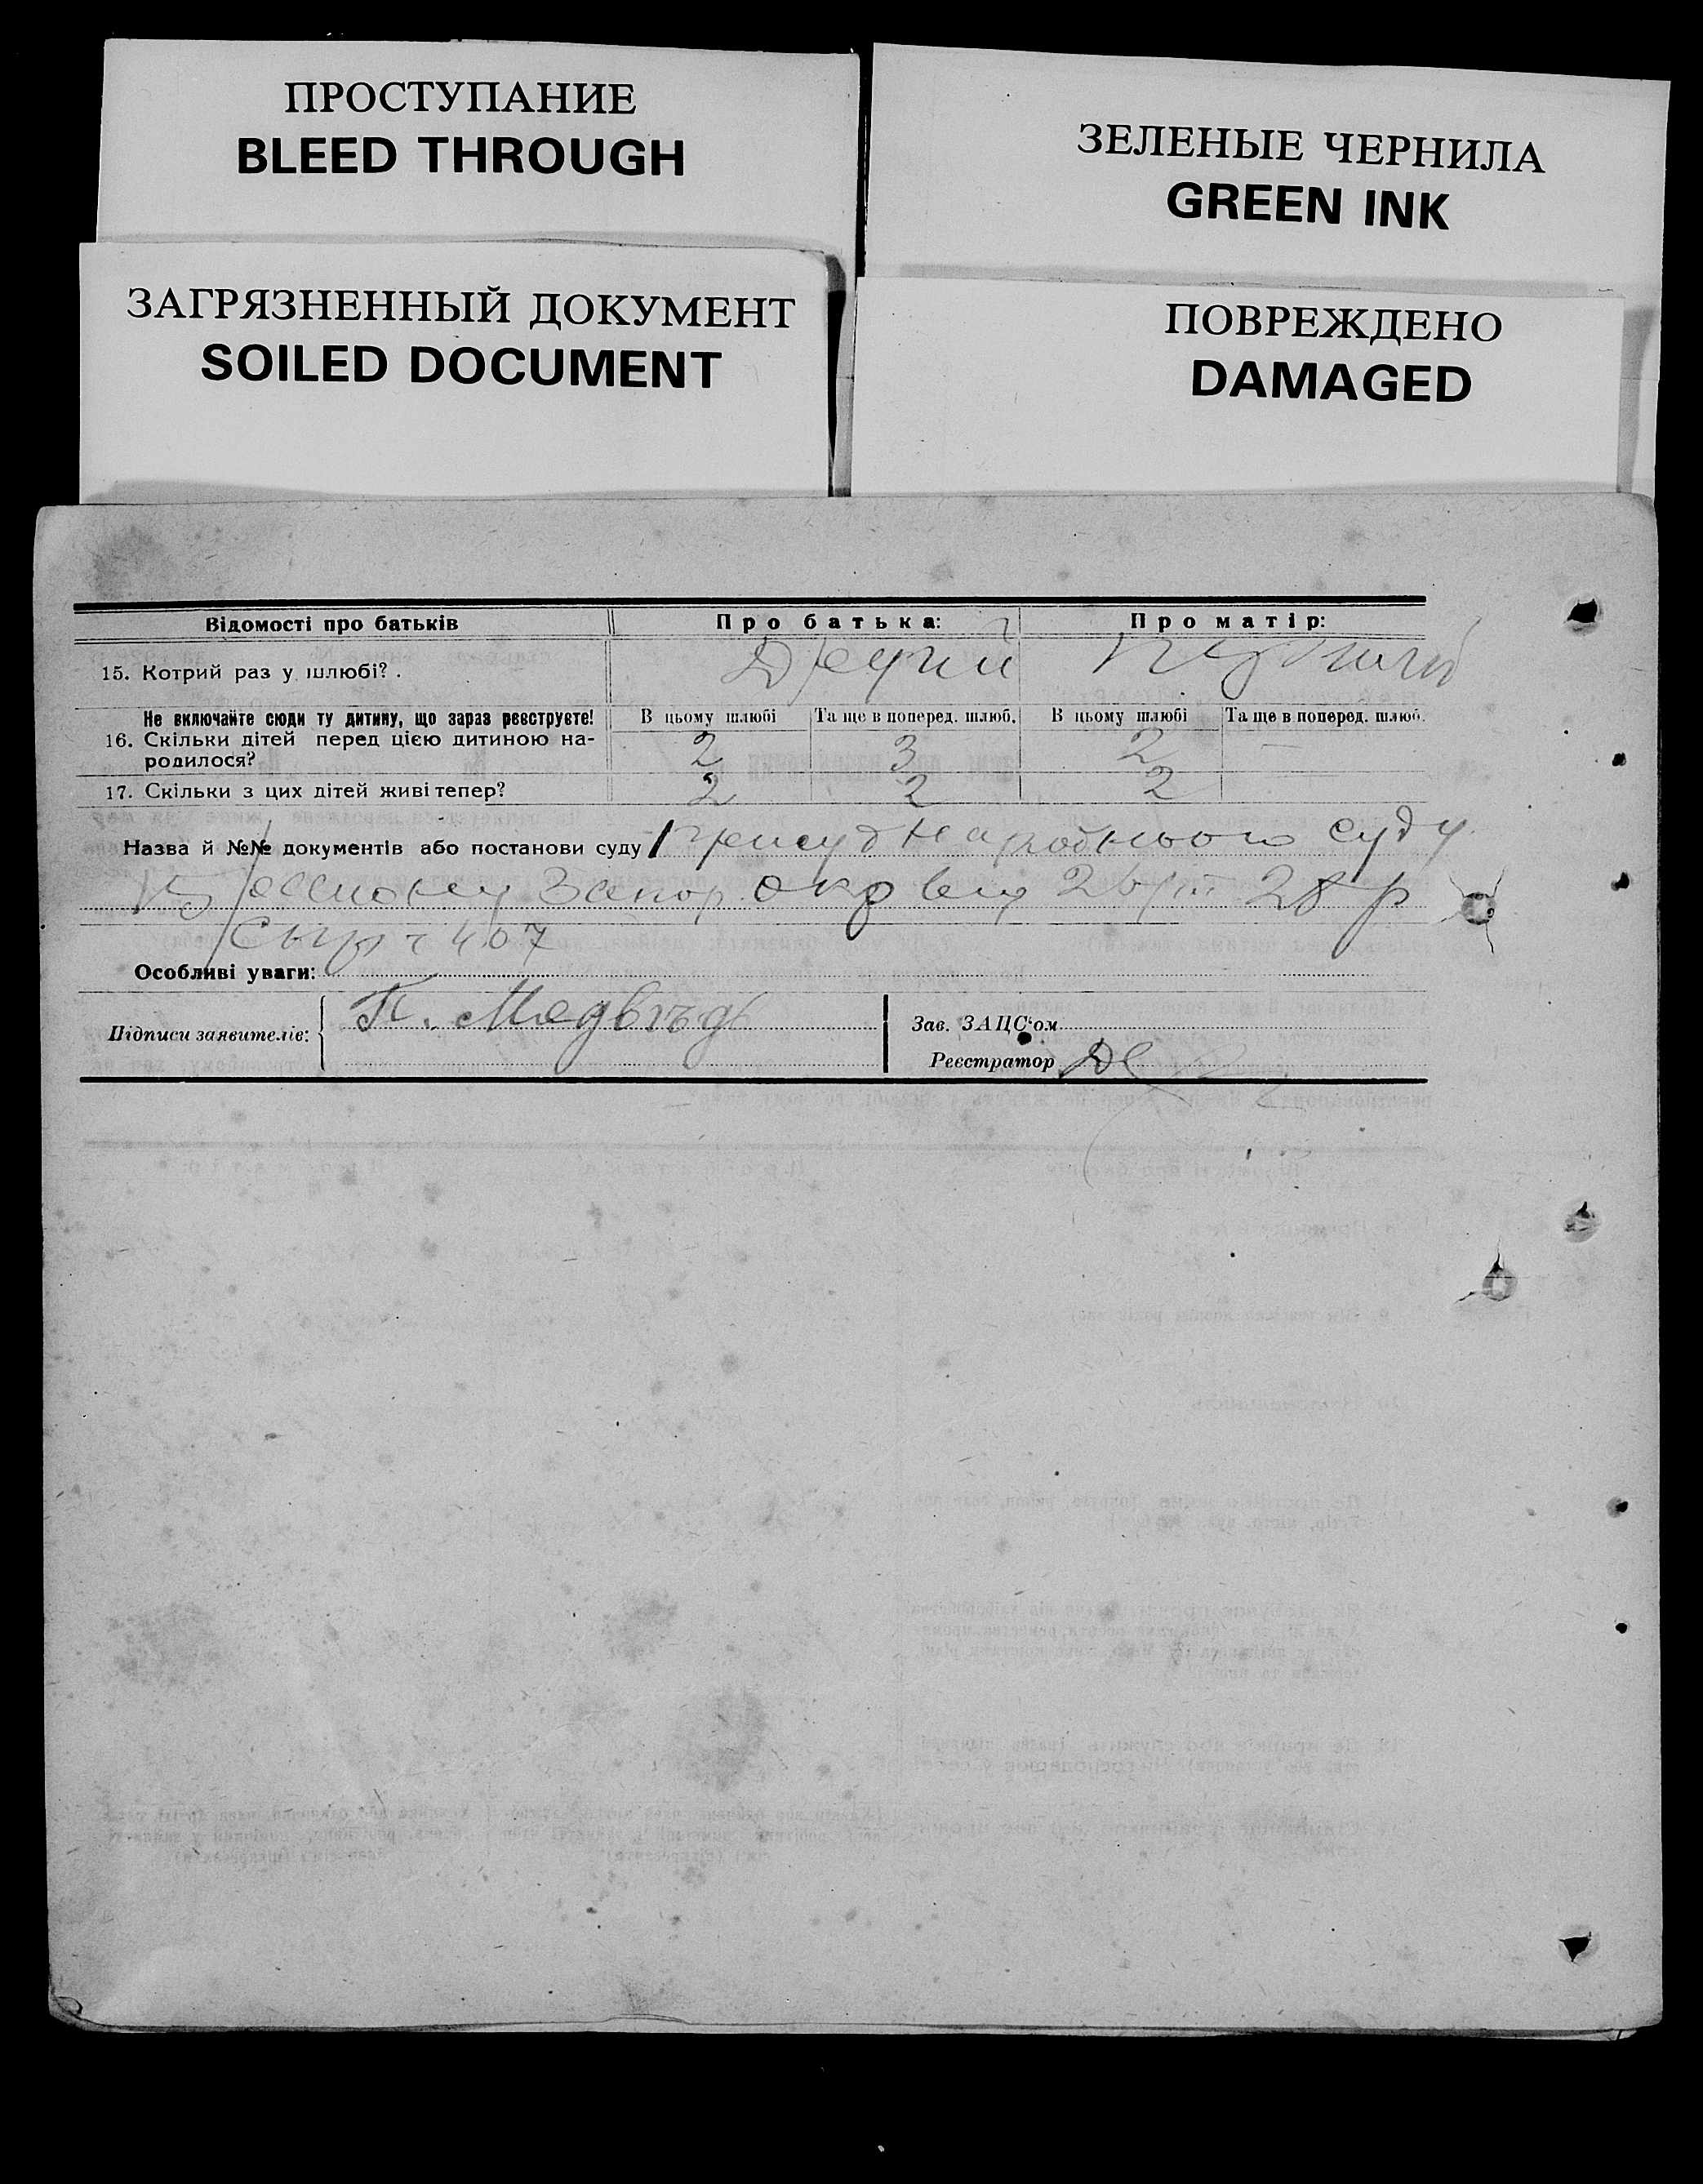 ПРОСТУПАНИЕ
BLEED THROUGH
ЗЕЛЕНЫЕ ЧЕРНИЛА
GREEN INK
ЗАГРЯЗНЕННЫЙ ДОКУМЕНТ
SOILED DOCUMENT
ПОВРЕЖДЕНО
DAMAGED
Відомості про батьків Про батька: Про матір:
15. Котрий раз у шлюбі?
Не включайте сюди ту дитину, що зараз реєструєте! В цьому шлюбі Та ще в поперед. шлюб. В цьому шлюбі Та ще в поперед. шлюб.
16. Скільки дітей перед цією дитиною на- 2 3 2 —
родилося?
17. Скільки з цих дітей живі тепер? 2 2 2
Назва й №№ документів або постанови суду присуд Народнього суду
Запор. округу 28 р
407
Особливі уваги:
Підписи заявителів: П. Медвѣдь
Зав. ЗАЦС'ом
Реєстратор